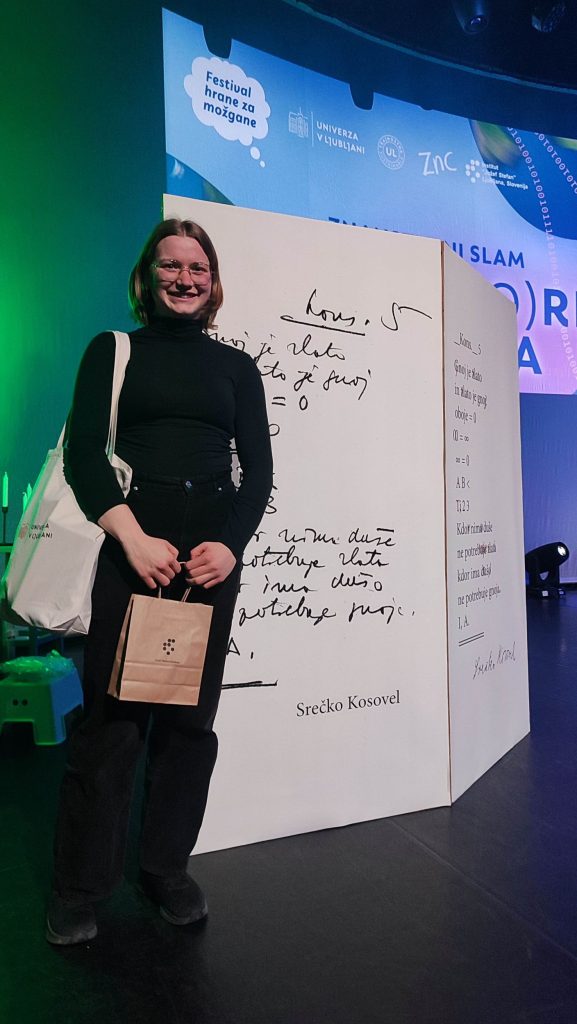 Festival
hrane za
možgane
UNIVERZA
V LJUBLJANI
UL
ZNC
Institut
"Jožef Stefan"
Ljubljana, Slovenija
SLAM
Kons. 5
je zlato
je gnoj
= 0
nima duše
potrebuje zlata
ima dušo
potrebuje gnoja.
A.
Srečko Kosovel
Kons. 5
Gnoj je zlato
in zlato je gnoj
oboje = 0
0 = ∞
∞ = 0
A B <
1, 2, 3
Kdor nima duše
ne potrebuje zlata
kdor ima dušo
ne potrebuje gnoja.
I, A.
Srečko Kosovel
UNIVERZA
V LJUBLJANI